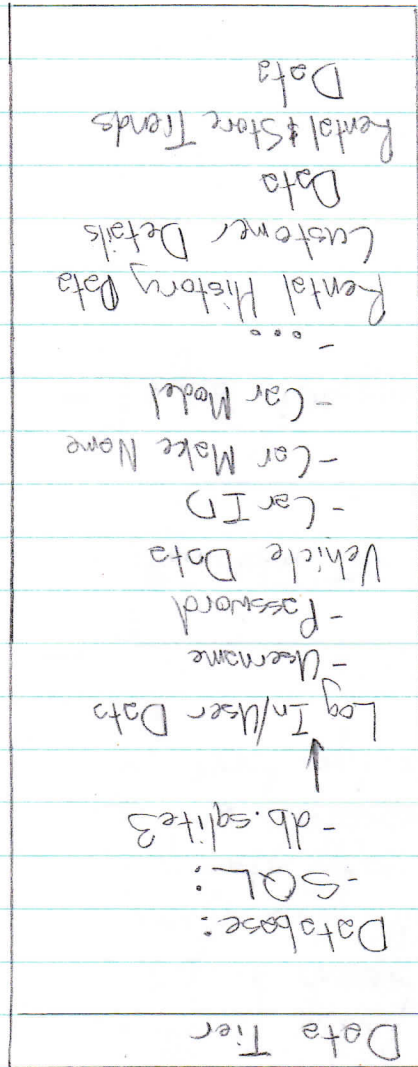 Data Tier
Database:
-SQL:
-db.sqlite3
↓
Log In/User Data
-Username
-Password
Vehicle Data
-Car ID
-Car Make Name
-Car Model
-...
Rental History Data
Customer Details
Data
Rental & Store Trends
Data